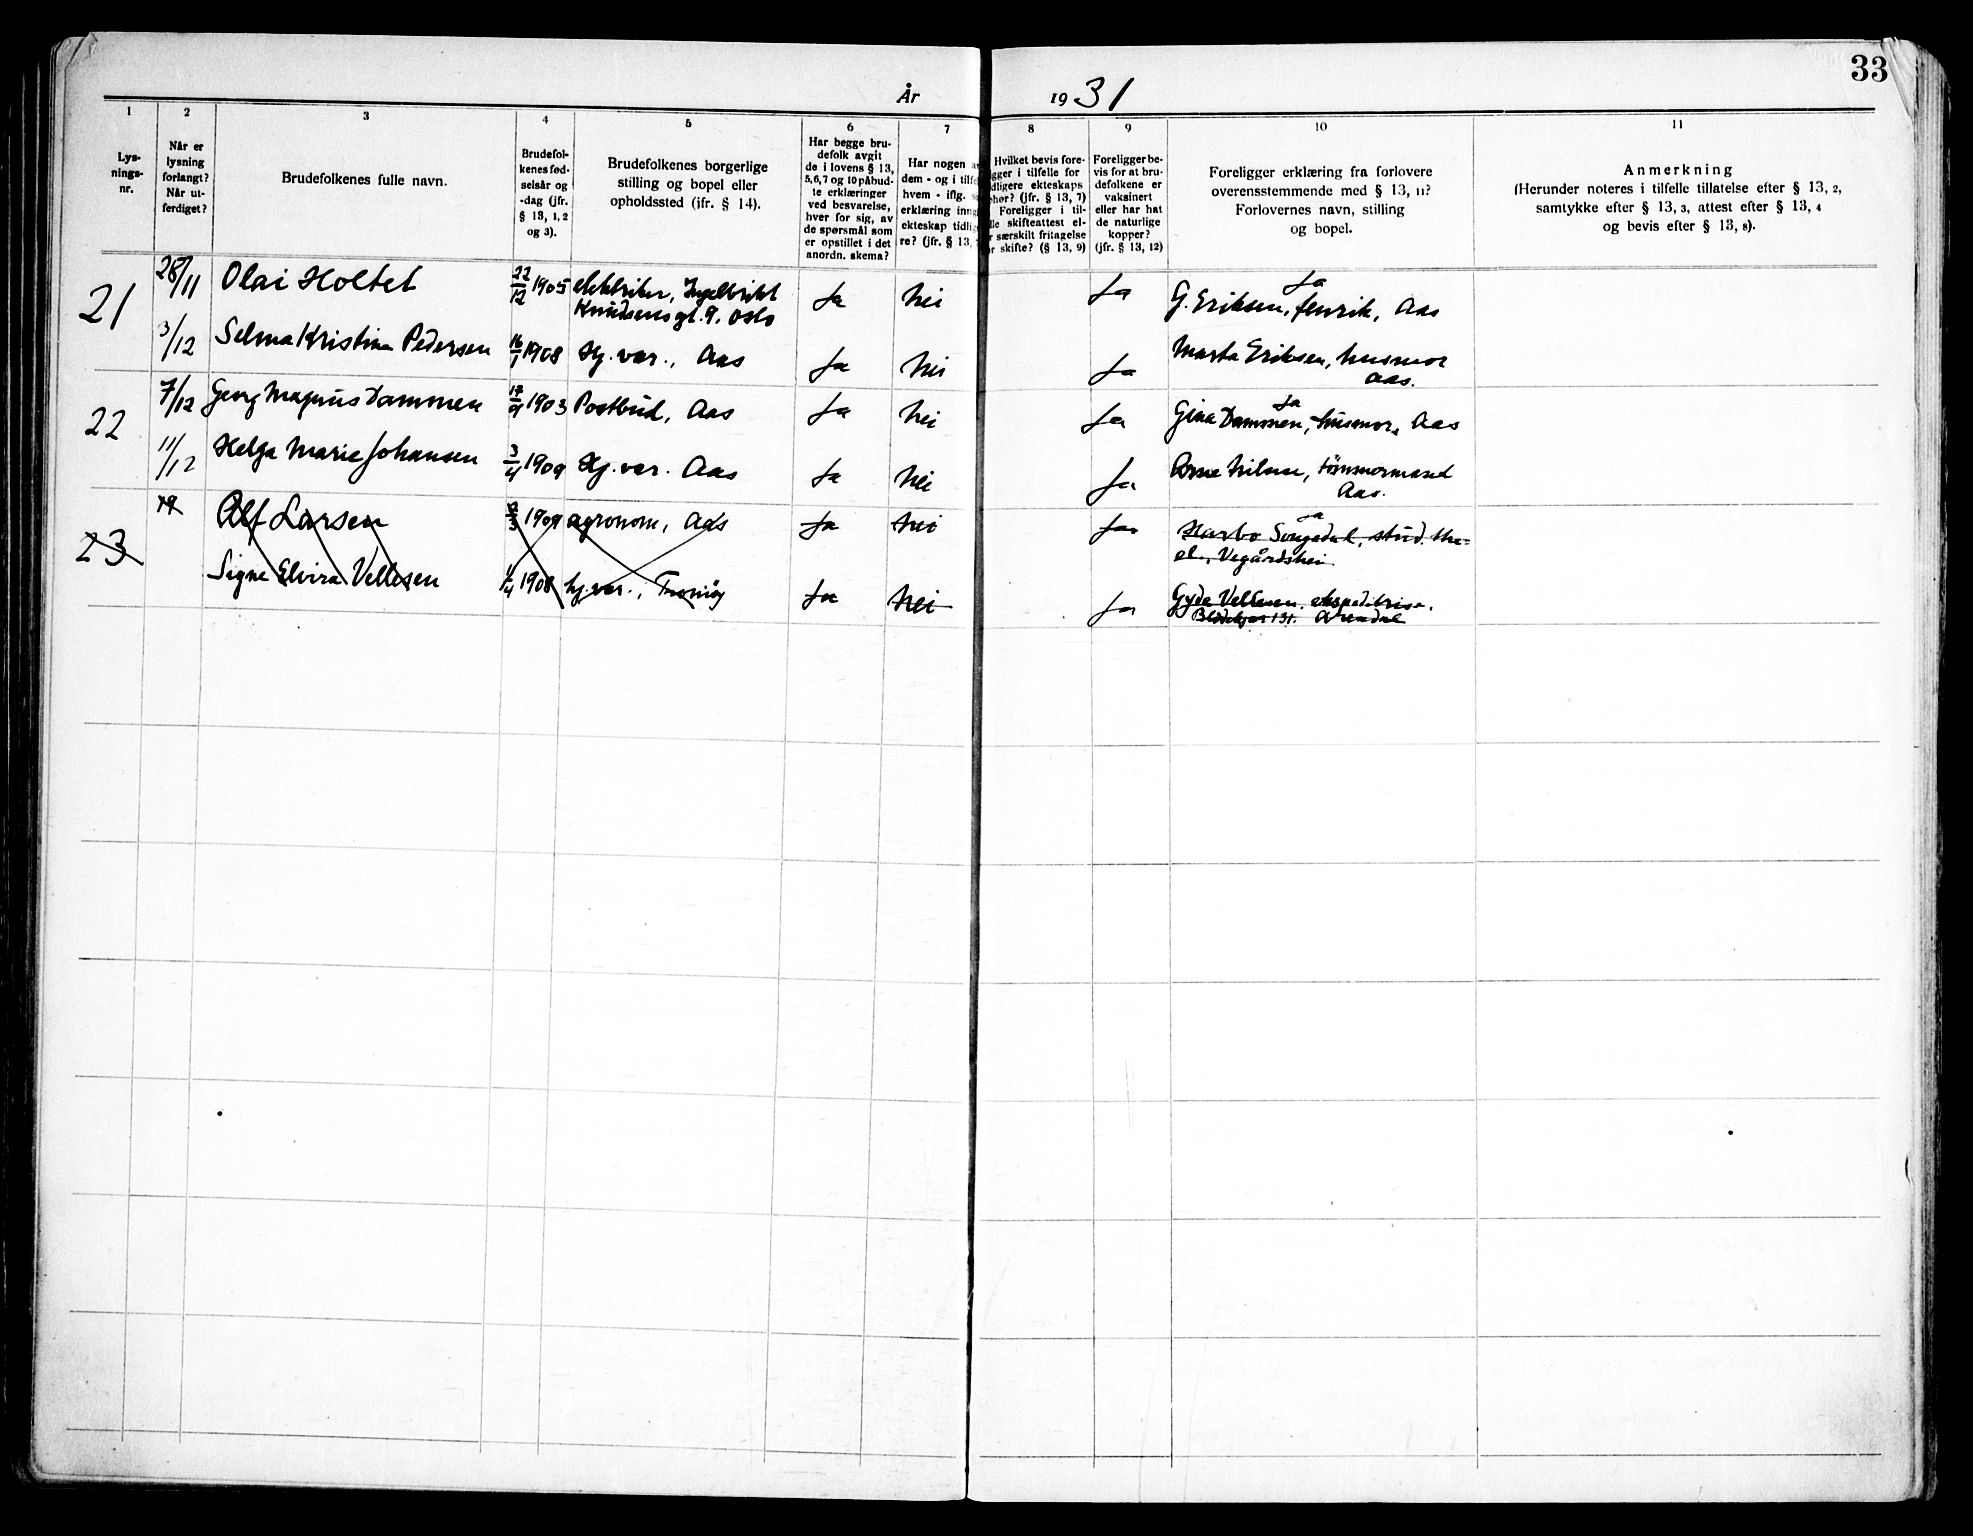 33
År 1931
1 2 3 4 5 6 7 8 9 10 11
Lys-
nings-
nr.
Når er
lysning
forlangt?
Når ut-
ferdiget?
Brudefolkenes fulle navn.
Brudefol-
kenes fød-
selsår og
-dag (jfr.
§ 13, 1, 2
og 3).
Brudefolkenes borgerlige
stilling og bopel eller
opholdssted (ifr. § 14).
Har begge bru-
defolk avgit
de i lovens § 13,
5,6,7 og 10 påbud-
te erklæringer
ved besvarelse,
hver for sig, av
de spørsmål som
er opstillet i det
anordn. skema?
Har nogen
dem - og i tilfe
hvem - iflg.
erklæring inng
ekteskap tidlig
re? (jfr. § 13,
Hvilket bevis fore-
gger i tilfelle for
dligere ekteskaps
phør? (jfr. § 13, 7)
Foreligger i til-
lle skifteattest el-
r særskilt fritagelse
or skifte? (§ 13, 9)
Foreligger be-
vis for at bru-
defolkene er
vaksinert
eller har hat
de naturlige
kopper?
(jfr. § 13, 12)
Foreligger erklæring fra forlovere
overensstemmende med § 13, 11?
Forlovernes navn, stilling
og bopel.
Anmerkning
(Herunder noteres i tilfelle tillatelse efter § 13, 2,
samtykke efter § 13, 3, attest efter § 13, 4
og bevis efter § 13, 8).
21 28/11 Olai Holtet 22/12 1905 elektriker, Ingelbrikt
Knudsens gt. 9, Oslo Ja Nei Ja Ja
G. Eriksen, fenrik, Aas
3/12 Selma Kristine Pedersen 16/1 1908 Hj. vær., Aas Ja Nei Ja Marta Eriksen, husmor
Aas.
22 7/12 Georg Magnus Dammen 17/9 1903 Postbud, Aas Ja Nei Ja Ja
Gina Dammen, husmor, Aas
11/12 Helga Marie Johansen 3/4 1909 Hj. vær. Aas Ja Nei Ja Arne Nilsen, tømmermand
Aas.
23 Alf Larsen 1909 agronom, Aas Ja Nei Ja Ja
Songedal, stud. the-
ol., Vegårdshei
Signe Elvira Vellesen 1/4 1908 hj. vær., Tromøy Ja Nei Ja Gyda Vellesen, ekspeditrise,
Blødekjær 131. Arendal